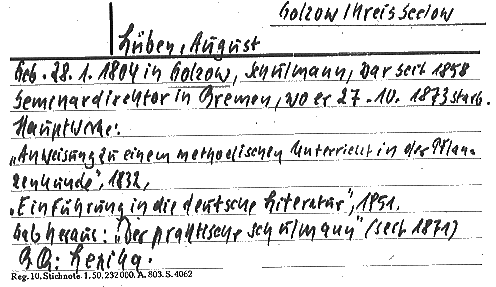 Golzow/Kreis Seelow
Lüben, August
Geb. 28. 1. 1804 in Golzow, Schulmann, war seit 1858
Seminardirektor in Bremen, wo er 27. 10. 1873 starb.
Hauptwerke:
„Anweisung zu einem methodischen Unterricht in der Pflan-
zenkunde", 1832,
„Einführung in die deutsche Literatur", 1851.
Gab heraus: „Der praktische Schulmann" (seit 1871)
Reg. 10. Stichnote. 1. 50. 232000. A. 803. S. 4062